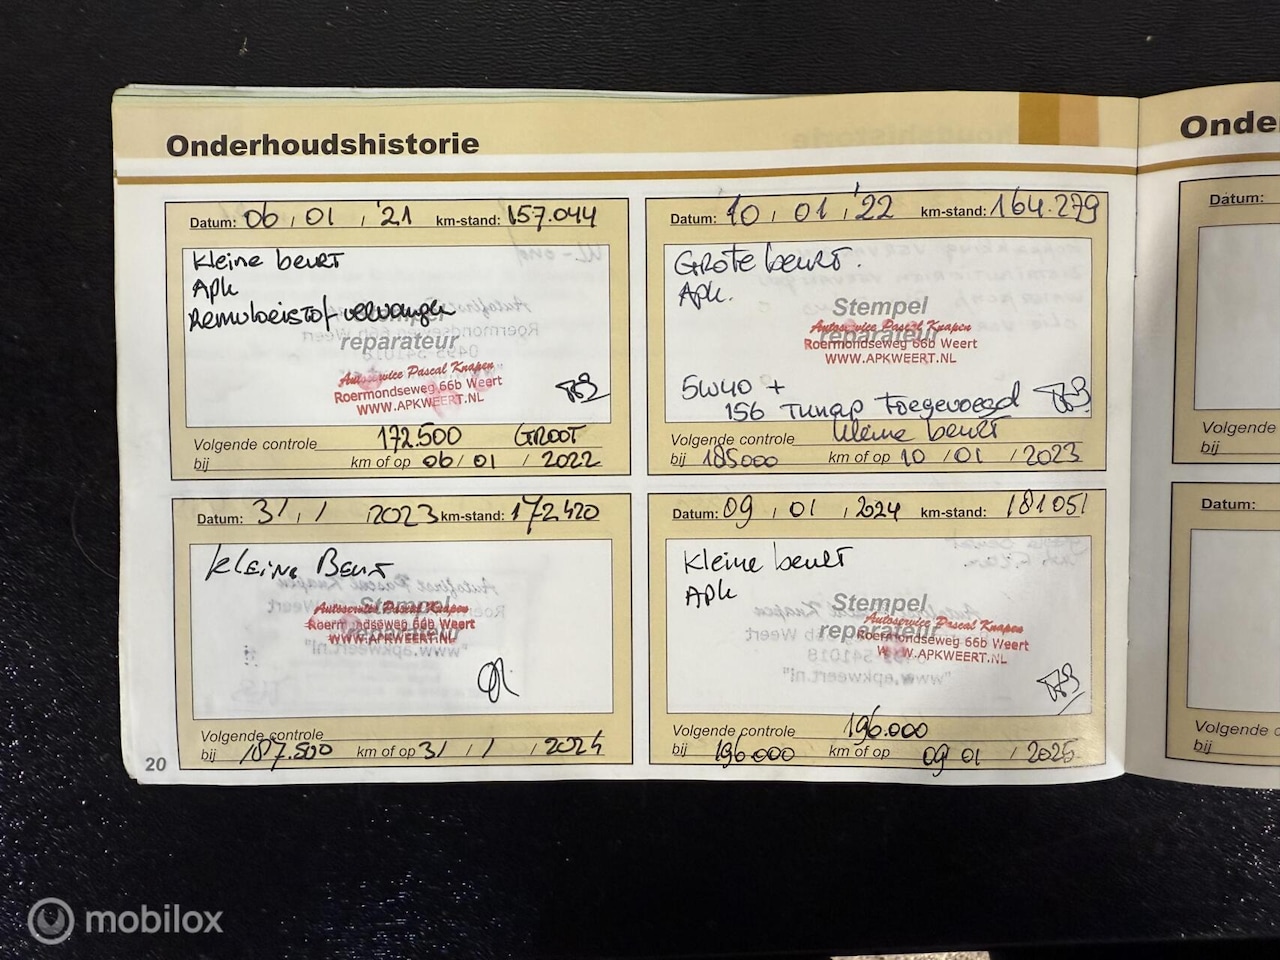 Onderhoudshistorie
Datum: 06 / 01 / '21 km-stand: 157.044
Kleine beurt
Apk
Remvloeistof vervangen
Stempel
reparateur
Autoservice Pascal Knapen
Roermondseweg 66b Weert
WWW.APKWEERT.NL
Volgende controle 172.500 GROOT
bij km of op 06 / 01 / 2022
Datum: 10 / 01 / '22 km-stand: 164.279
Grote beurt.
Apk.
Stempel
reparateur
Autoservice Pascal Knapen
Roermondseweg 66b Weert
WWW.APKWEERT.NL
5W40 +
156 Tunap toegevoegd
Volgende controle kleine beurt
bij 185000 km of op 10 / 01 / 2023
Datum: 31 / 1 / 2023 km-stand: 172420
Kleine Beurt
Stempel
reparateur
Autoservice Pascal Knapen
Roermondseweg 66b Weert
WWW.APKWEERT.NL
Volgende controle
bij 187.500 km of op 31 / 1 / 2024
Datum: 09 / 01 / 2024 km-stand: 181051
Kleine beurt
Apk
Stempel
reparateur
Autoservice Pascal Knapen
Roermondseweg 66b Weert
WWW.APKWEERT.NL
Volgende controle 196.000
bij 196.000 km of op 09 01 / 2025
20
Onde
Datum:
Volgende
bij
Datum:
Volgende c
bij
mobilox